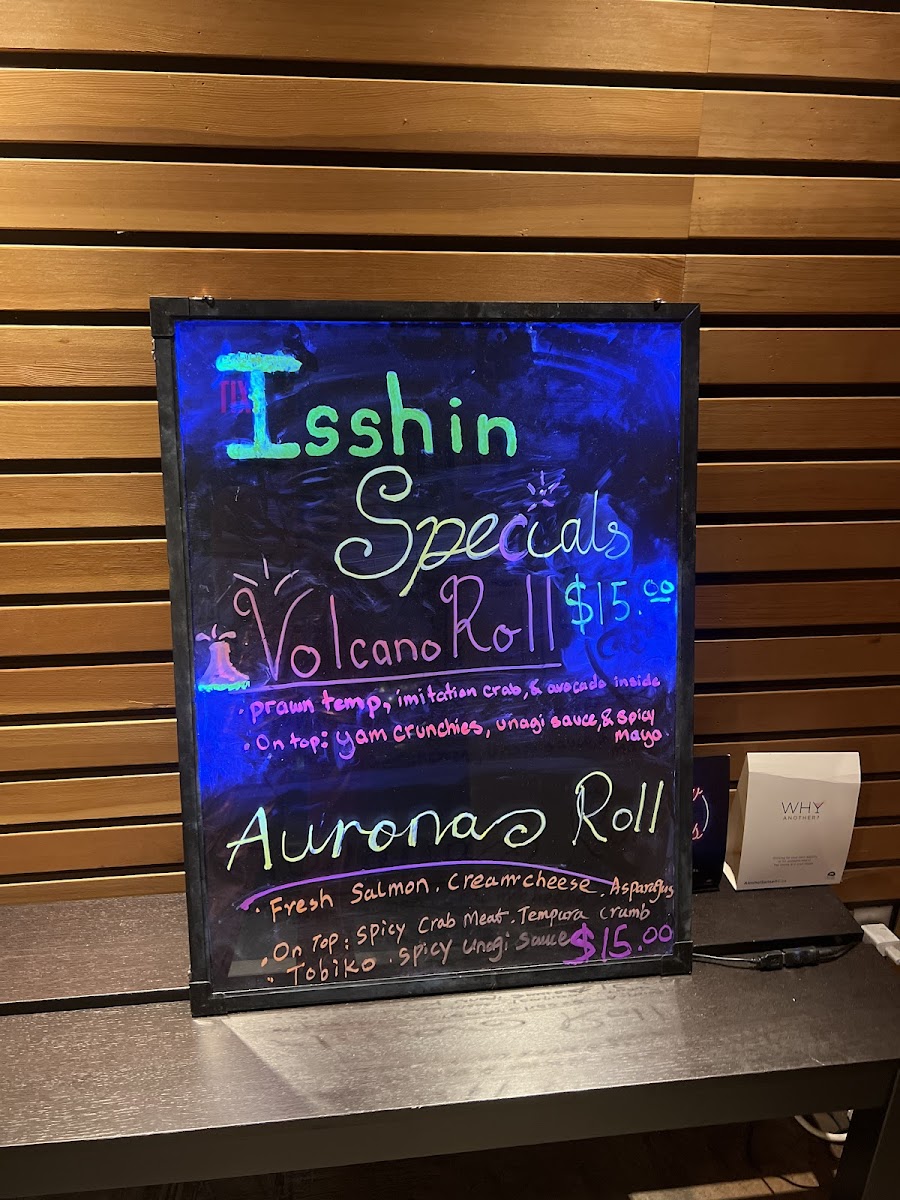 Isshin
Specials
Volcano Roll $15.00
· prawn temp, imitation crab, & avocado inside
· On top: yam crunchies, unagi sauce, & spicy
mayo
Auronas Roll
· Fresh Salmon. Creamcheese, Asparagus
· On Top: Spicy Crab Meat. Tempura Crumb
· Tobiko · Spicy Unagi Sauce $15.00
WHY
ANOTHER?